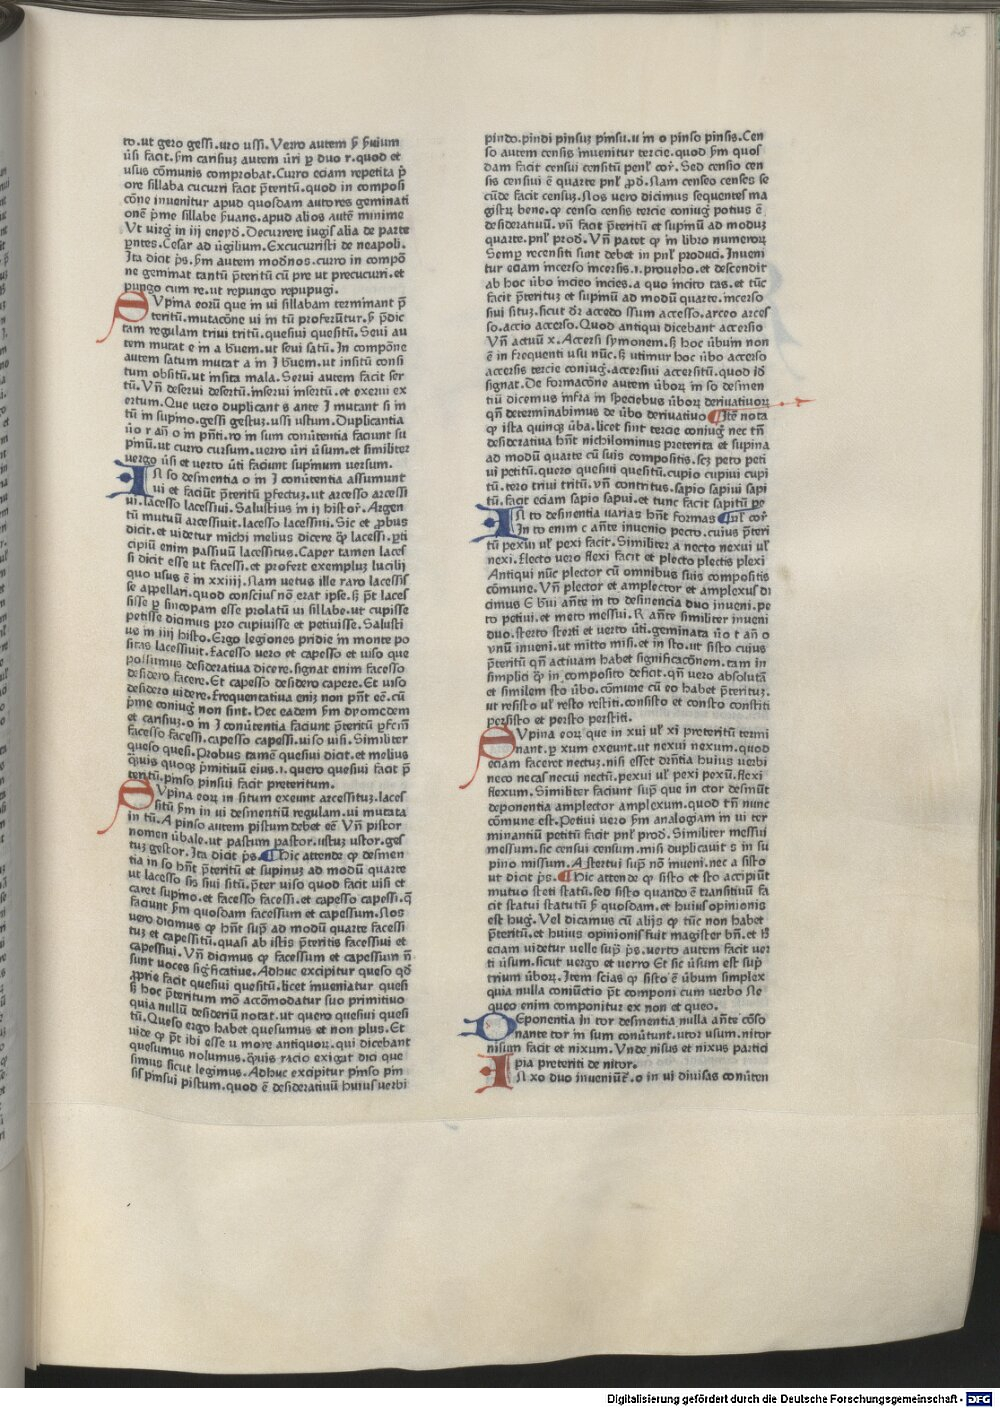 to.ut gero gessi.uro ussi. Verro autem
usi facit. canfiuz autem uri duo r.quod et
usus cōmunis comprobat. Curro eciam repetita
ore sillaba cucurri facit p̄teritū.quod in composi
cōne inuenitur apud quosdam autores geminati
onē p̄me sillabe apud alios autē minime
Vt uirg̃ in iij eneyd. Decurrere iugis alia de parte
p̄ntes. Cesar ad ũgilium. Excucurristi de neapoli.
Ita dicit p̄s. autem modnos.curro in compō
ne geminat tantū p̄teritū cū pre ut precucurri.et
pungo cum re.ut repungo repupugi.
Supina eorū que in ui sillabam terminant p̄
teritū.mutacōne ui in tū proferūtur. p̄dic
tam regulam triui tritū.quesiui quesitū. Seui au
tem mutat e in a ut seui satū. In compōne
autem satum mutat a in I ut insitū consi
tum obsitū.ut insita mala. Serui autem facit ser
tū. Vn̄ deserui desertū.inserui insertū.et exerui ex
ertum. Que uero duplicant s ante I mutant si in
tū in supino.gessi gestuz.ussi ustum. Duplicantia
ũo r an̄ o in p̄nti.ro in sum conūtentia faciunt su
pinū.ut curro cursum.uerro ũri ũsum.et similiter
uergo ũsi et uerto ũti faciunt supinum uersum.
In so desinentia o in I conūtentia assumunt
ui et faciūt p̄teritū perfectuz.ut arcesso arcessi
ui.lacesso lacessiui. Salustius in ij histor. Argen
tū mutuū arcessiuit.lacesso lacessiui. Sic et probus
dicit.et uidetur michi melius dicere lacessi.
cipiū enim passiuū lacessitus. Caper tamen laces
si dicit esse ut facessi.et profert exempluz lucilij
quo usus ē in xxiiij. Nam uetus ille raro lacessis
se appellari.quod conscius nō erat ipse. p̄t laces
sisse sincopam esse prolatū ui sillabe.ut cupisse
petisse dicimus pro cupiuisse et petiuisse. Salusti
us in iiij histo. Ergo legiones pridie in monte po
sitas lacessiuit. facesso uero et capesso et uiso que
possumus desideratiua dicere.signat enim facesso
desidero facere. Et capesso desidero capere. Et uiso
desidero uidere. frequentatiua eniz non pn̄t eē.cū
p̄me coniug̃ non sint. Hec eadem dyomedem
et carisiuz.o in I conūtentia faciunt p̄teritū
facesso facessi.capesso capessi.uiso uisi. Similiter
queso quesi. Probus tamē quesiui dicit.et melius
quoq p̄mitiuū eius.i.quero quesiui facit p̄
teritū.pinso pinsui facit preteritum.
Supina eorz in situm exeunt arcessituz.laces
sitū in ui desinentiū regulam.ui mutata
in tū. A pinso autem pistum debet eē Vn̄ pistor
nomen ũbale.ut pastum pastor.ustuz ustor.ges
tuz gestor. Ita dicit p̄s. Hic attende desinen
tia in so hn̄t p̄teritū et supinuz ad modū quarte
ut lacesso sis siui situ.p̄ter uiso quod facit uisi et
caret supino.et facesso facessi.et capesso capessi.q̄
faciunt quosdam facessum et capessum. Nos
uero dicimus hn̄t sup̄ ad modū quarte facessi
tuz et capessitū.quasi ab istis p̄teritis facessiui et
capessiui. Vn̄ dicamus facessum et capessum n̄
sunt uoces significatiue. Adhuc excipitur queso qd̄
proprie facit quesiui quesitū.licet inueniatur quesi
hoc p̄teritum mō accōmodatur suo primitiuo
quia nullū desideriū notat.ut quero quesiui quesi
tū. Queso ergo habet quesumus et non plus. Et
uide p̄t ibi esse u more antiquorz.qui dicebant
quesumus nolumus. racio exigat dici que
simus sicut legimus. Adhuc excipitur pinso pin
sis pinsui pistum.quod ē desideratiuū huius uerbi
pindo.pindi pinsuz pinsū.ii in o pinso pinsis. Cen
so autem censis inuenitur tercie.quod quos
dam facit censui censitū penl̄ cor̄. Sed censio cen
sis censiui ē quarte pnl̄ prod. Nam censeo censes se
cūde facit censuz. Nos uero dicimus sequentes ma
gistrz bene. censo censis tercie coniug̃ potius ē
desideratiuū. vn̄ facit p̄teritū et supinū ad moduz
quarte.pnl̄ prod. Vn̄ patet in libro numerorz
Semp recensiti sunt debet in pnl̄ produci. Inueni
tur eciam incerso incersis.i.proueho.et descendit
ab hoc ũbo incieo incies.a quo incito tas.et tūc
facit p̄terituz et supinū ad modū quarte.incerso
siui situz.sicut dr̄ accedo ssum accesso.arceo arces
so.accio accerso. Quod antiqui dicebant accersio
Vn̄ actuū x. Accersi symonem. hoc ũbum non
ē in frequenti usu nūc. utimur hoc ũbo accerso
accersis tercie coniug̃.accersiui accersitū.quod id̄
signat. De formacōne autem ũborz in so desinen
tiū dicemus infra in speciebus ũborz deriuatiuorz
qn̄ determinabimus de ũbo deriuatiuo Itē nota
ista quinqz ũba.licet sint tercie coniug̃ nec tn̄
desideratiua hn̄t nichilominus preterita et supina
ad modū quarte cū suis compositis.scz peto peti
ui petitū.quero quesiui quesitū.cupio cupiui cupi
tū.tero triui tritū.vn̄ contritus.sapio sapiui sapi
tū.facit eciam sapio sapui.et tunc facit sapitū pe
In to desinentia uarias hn̄t formas pnl̄ cor̄
In to enim c an̄te inuenio pecto.cuius p̄teri
tū pexui ul̄ pexi facit. Similiter a necto nexui ul̄
nexi. flecto uero flexi facit et plecto plectis plexi
Antiqui nūc plector cū omnibus suis compositis
cōmune. Vn̄ plector et amplector et amplexus di
cimus E an̄te in to desinencia duo inueni.pe
to petiui.et meto messui. R an̄te similiter inueni
duo.sterto sterti et uerto ũti.geminata ũo t an̄ o
vnū inueni.ut mitto misi.et in sto.ut sisto cuius
p̄teritū qn̄ actiuam habet significacōnem.tam in
simplici in composito deficit.qn̄ uero absolutā
et similem sto ũbo.cōmune cū eo habet p̄terituz.
ut resisto ul̄ resto restiti.consisto et consto constiti
persisto et persto perstiti.
Supina eorz que in xui ul̄ xi preteritū termi
nant. xum exeunt.ut nexui nexum.quod
eciam faceret nectuz.nisi esset drn̄tia huius uerbi
neco necas necui nectū.pexui ul̄ pexi pexū.flexi
flexum. Similiter faciunt sup̄ que in ctor desinūt
deponentia amplector amplexum.quod tn̄ nunc
cōmune est. Petiui uero analogiam in ui ter
minantiū petitū facit pnl̄ prod. Similiter messui
messum.sic censui censum.misi duplicauit s in su
pino missum. A stertui sup̄ nō inueni.nec a sisto
ut dicit p̄s. Hic attende sisto et sto accipiūt
mutuo steti statū.sed sisto quando ē transitiuū fa
cit statui statutū quosdam.et huius opinionis
est hug̃. Vel dicamus cū alijs tūc non habet
p̄teritū.et huius opinionis fuit magister bn̄.et
eciam uidetur uelle sup̄ p̄s.uerto autem facit uer
ti ũsum.sicut uergo et uerro Et sic ũsum est sup̄
trium ũborz. Item scias sisto ē ũbum simplex
quia nulla coniūctio p̄t componi cum uerbo Ne
queo enim componitur ex non et queo.
Deponentia in tor desinentia nulla an̄te cōso
nante tor in sum conūtunt.utor usum.nitor
nisum facit et nixum. Vnde nisus et nixus partici
pia preteriti de nitor.
In xo duo inueniūt̄.o in ui diuisas conūten
Digitalisierung gefördert durch die Deutsche Forschungsgemeinschaft - DFG